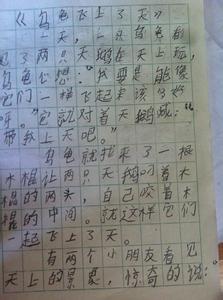 《乌龟飞上了天》
一天，一只乌龟看
见了两只天鹅在天上飞，
乌龟心想：“我要是能像
它们一样飞起来该多好
呀。”它就对着天鹅喊：“
带我上天吧。”
乌龟就找来了一根
木棍让两只天鹅叼着木
棍的两头，自己咬着木
棍的中间。就这样它们
一起飞上了天。
有两个小朋友看见
天上的景象，惊奇的说：